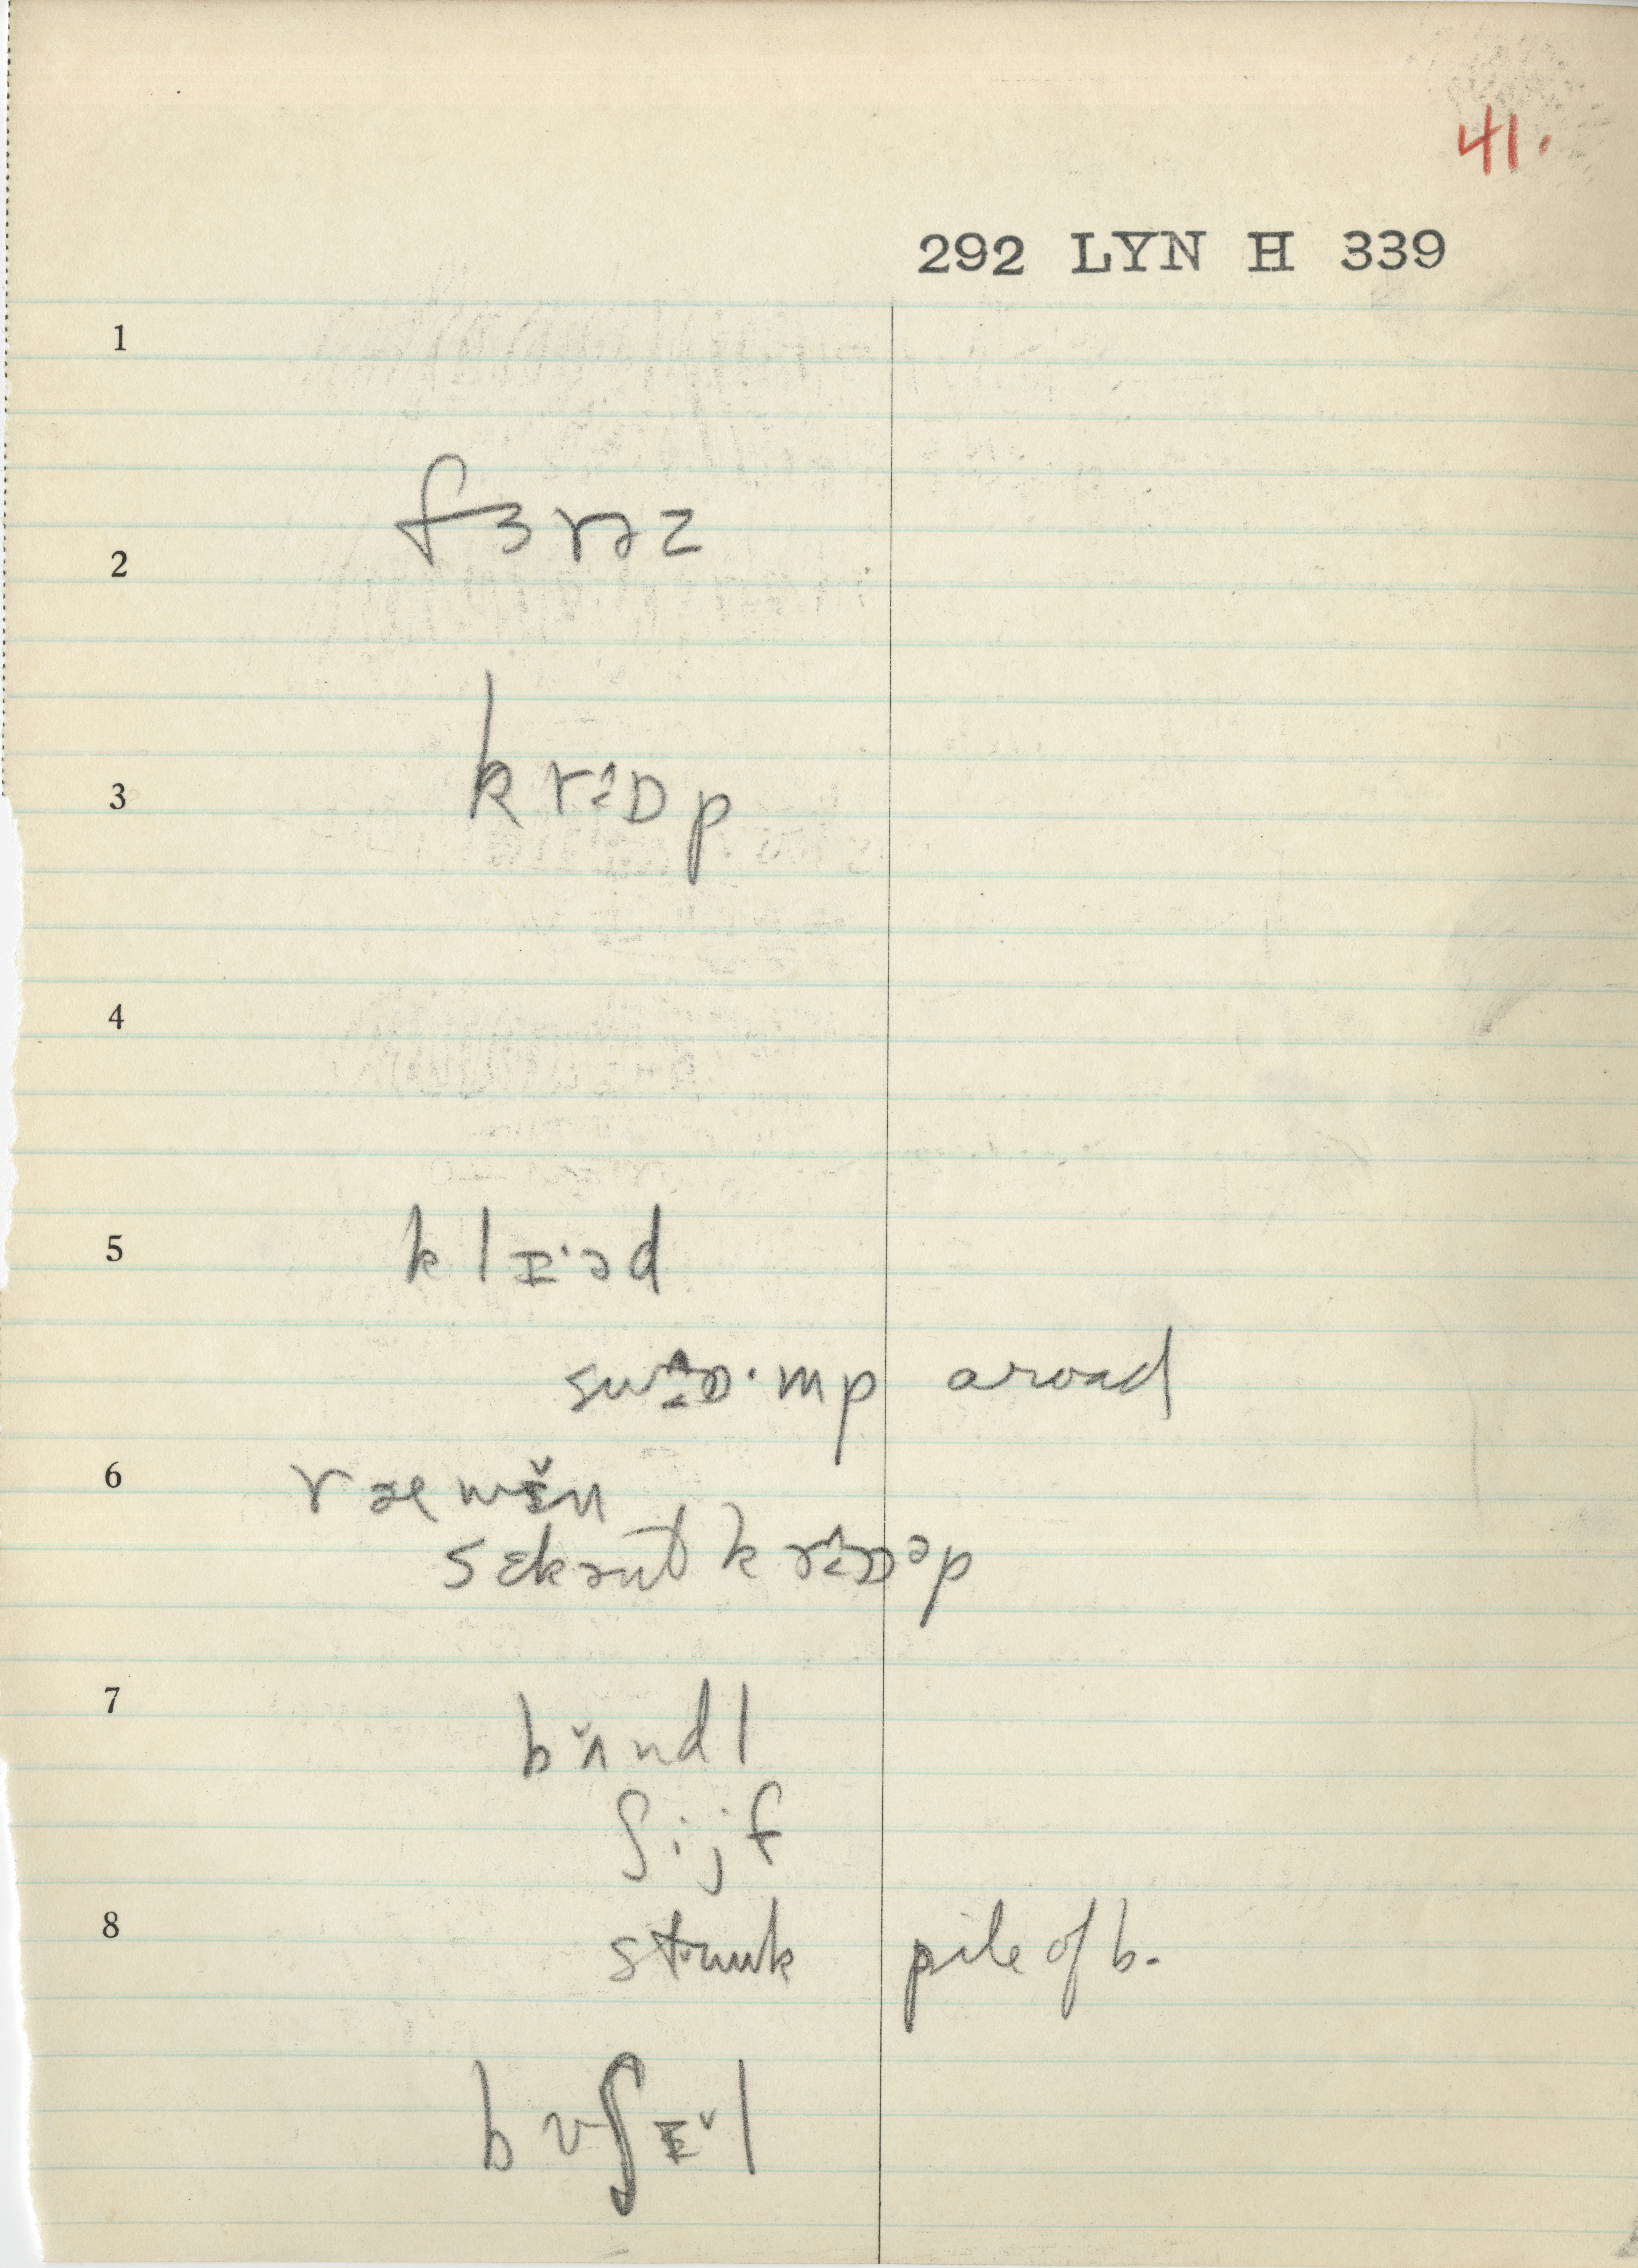 41.
292 LYN H 339
1
fɜrəz
2
3
krɒ̭̂p
4
5
klɪ·əd
swɒ̭̂·mp aroad
6
ræwɪ̆n
sɛkənt krɒ̭̂ᵊp
7
bʌ̆ndl
ʃijf
8
stʌuk pile of b.
bʊʃɪ̆l